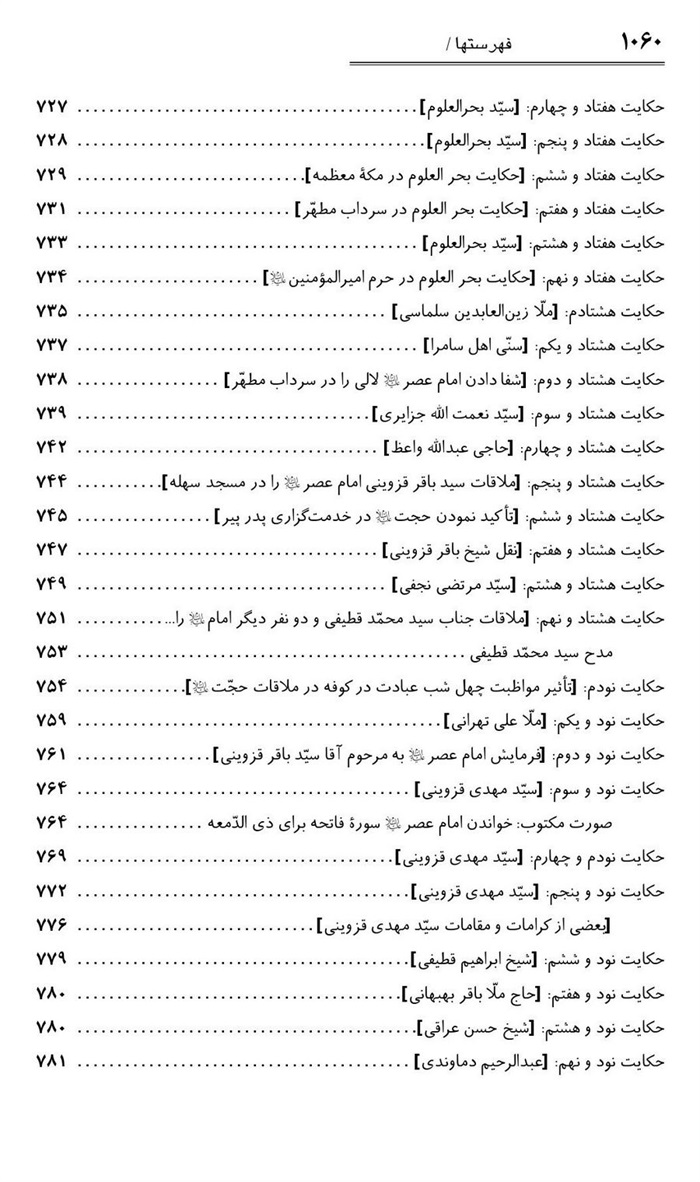 ۱۰۶۰ فهرستها /
حکایت هفتاد و چهارم: [سیّد بحرالعلوم] ........................................... ۷۲۷
حکایت هفتاد و پنجم: [سیّد بحرالعلوم] ............................................ ۷۲۸
حکایت هفتاد و ششم: [حکایت بحر العلوم در مکهٔ معظمه] ............................. ۷۲۹
حکایت هفتاد و هفتم: [حکایت بحر العلوم در سرداب مطهّر] ........................... ۷۳۱
حکایت هفتاد و هشتم: [سیّد بحرالعلوم] ........................................... ۷۳۳
حکایت هفتاد و نهم: [حکایت بحر العلوم در حرم امیرالمؤمنین] ....................... ۷۳۴
حکایت هشتادم: [ملّا زین‌العابدین سلماسی] ....................................... ۷۳۵
حکایت هشتاد و یکم: [سنّی اهل سامرا] ........................................... ۷۳۷
حکایت هشتاد و دوم: [شفا دادن امام عصر لالی را در سرداب مطهّر] .................. ۷۳۸
حکایت هشتاد و سوم: [سیّد نعمت الله جزایری] ..................................... ۷۳۹
حکایت هشتاد و چهارم: [حاجی عبدالله واعظ] ...................................... ۷۴۲
حکایت هشتاد و پنجم: [ملاقات سید باقر قزوینی امام عصر را در مسجد سهله] ........... ۷۴۴
حکایت هشتاد و ششم: [تأکید نمودن حجت در خدمت‌گزاری پدر پیر] ................. ۷۴۵
حکایت هشتاد و هفتم: [نقل شیخ باقر قزوینی] ...................................... ۷۴۷
حکایت هشتاد و هشتم: [سیّد مرتضی نجفی] ....................................... ۷۴۹
حکایت هشتاد و نهم: [ملاقات جناب سید محمّد قطیفی و دو نفر دیگر امام را... ........... ۷۵۱
مدح سید محمّد قطیفی ................................................. ۷۵۳
حکایت نودم: [تأثیر مواظبت چهل شب عبادت در کوفه در ملاقات حجّت] .............. ۷۵۴
حکایت نود و یکم: [ملّا علی تهرانی] .............................................. ۷۵۹
حکایت نود و دوم: [فرمایش امام عصر به مرحوم آقا سیّد باقر قزوینی] ................. ۷۶۱
حکایت نود و سوم: [سیّد مهدی قزوینی] .......................................... ۷۶۴
صورت مکتوب: خواندن امام عصر سورهٔ فاتحه برای ذی الدّمعه ................ ۷۶۴
حکایت نودم و چهارم: [سیّد مهدی قزوینی] ........................................ ۷۶۹
حکایت نود و پنجم: [سیّد مهدی قزوینی] .......................................... ۷۷۲
[بعضی از کرامات و مقامات سیّد مهدی قزوینی] .............................. ۷۷۶
حکایت نود و ششم: [شیخ ابراهیم قطیفی] .......................................... ۷۷۹
حکایت نود و هفتم: [حاج ملّا باقر بهبهانی] ......................................... ۷۸۰
حکایت نود و هشتم: [شیخ حسن عراقی] ........................................... ۷۸۰
حکایت نود و نهم: [عبدالرحیم دماوندی] .......................................... ۷۸۱